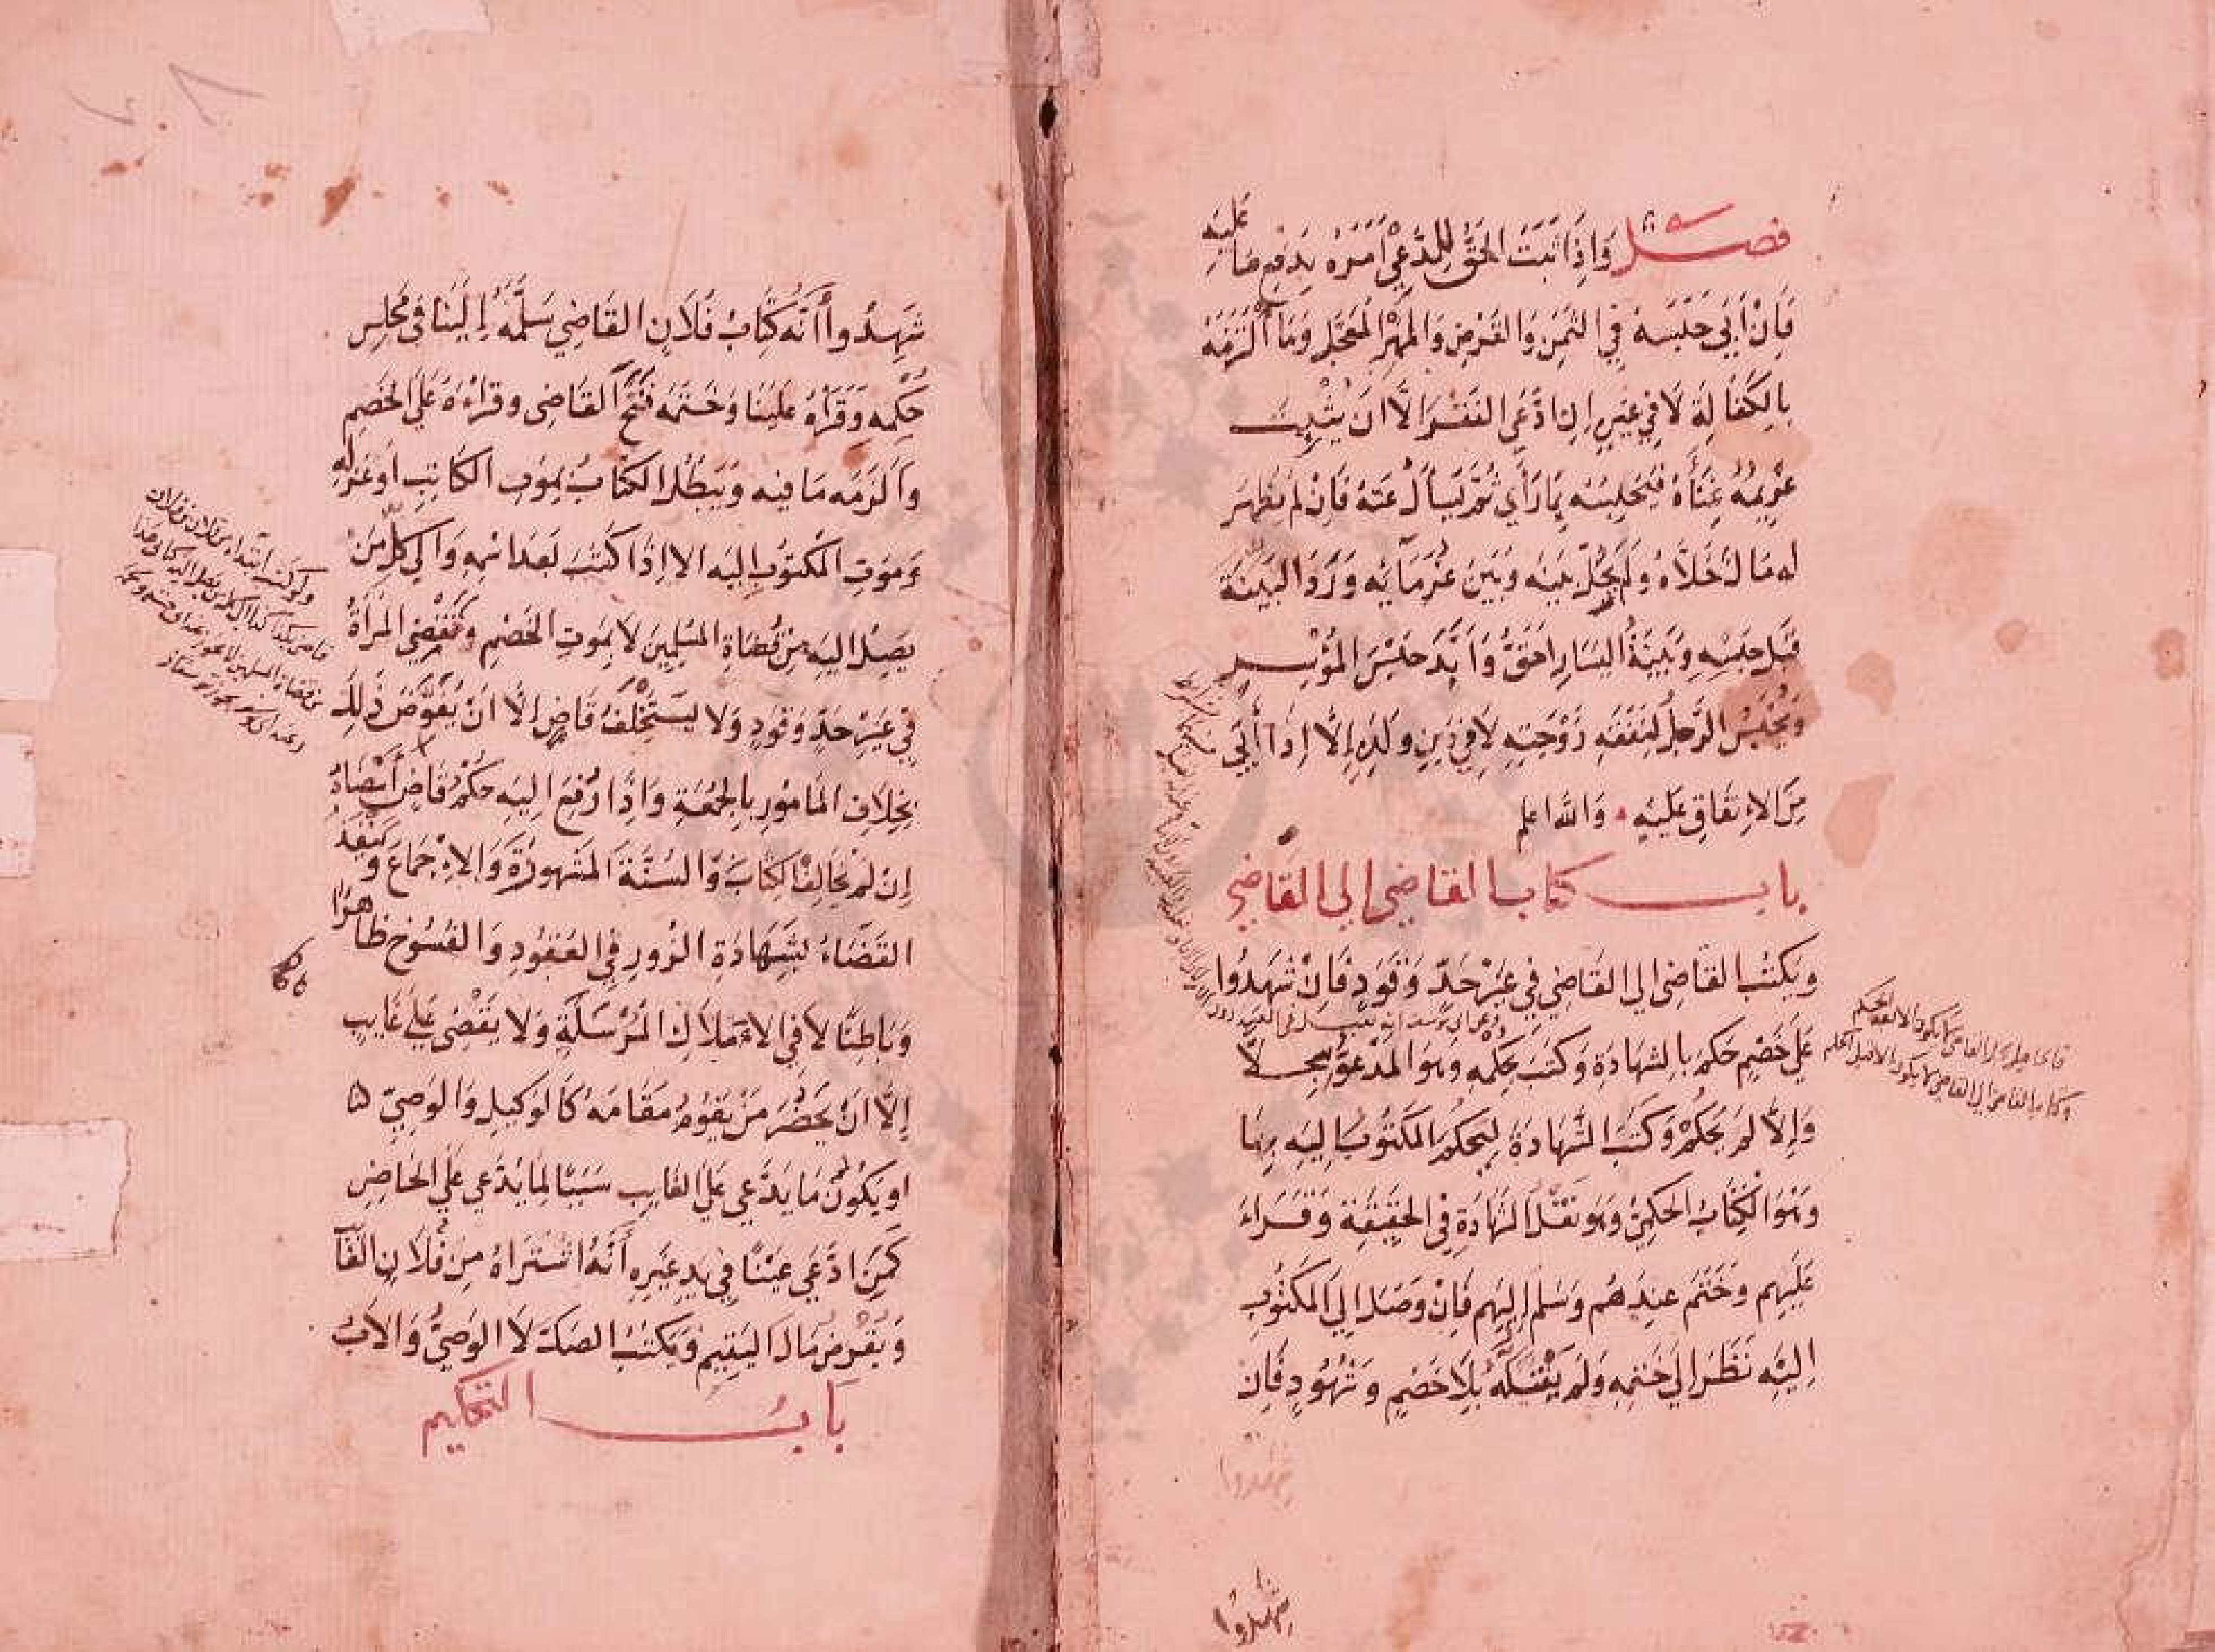 فصل وَاِذَا ثَبَتَ الحَقُّ لِلمدَّعِي اَمَرَهُ بِدَفعِ مَا عَلَيْهِ
فَاِنْ اَبَى حَبَسَهُ فِي الثَّمَنِ وَالقَرضِ وَالمَهْرِ المُعَجَّلِ وَمَا اُلْتَزَمَهُ
بِالكَفَالَةِ لَا فِي غَيرِهِ اِنِ ادَّعَى الفَقْرَ اِلَّا اَن يُثْبِتَ
غَرِيمُهُ غِنَاهُ فَيَحْبِسَهُ بِمَا رَأَى ثُمَّ يَسْأَلُ عَنهُ فَاِنْ لَم يَظْهَر
له مَالٌ خَلَّاهُ وَلَم يَحُلْ بَينَهُ وَبَينَ غُرَمَآئِه وَرَدَّ البَيِّنَةَ
قَبلَ حَبْسِهِ وَبَيِّنَةُ اليَسَارِ اَحَقُّ وَاَبَّدَ حَبْسَ المُوسِرِ
وَيُحْبَسُ الرَّجُلُ لِنَفَقَةِ زَوْجَتِهِ لَا فِي دَيْنِ وَلَدِهِ اِلَّا اِذَا اَبَى
مِنَ الاِنفَاقِ عَلَيْهِ وَاللّه اعلم
باب كتاب القاضي الى القاضي
وَيَكتُبُ القاضِى الى القَاضِي فِي غَيْرِ حَدٍّ وَقَوَدٍ فَاِنْ شَهِدُوا
عَلَى خَصْمٍ حَكَمَ بالشهَادَةِ وَكَتَبَ بِحُكمِهِ وَهوَ المَدعُوُّ سِجِلًّا
وَاِلَّا لَم يَحكُمْ وَكَتَبَ الشَّهَادَةَ لِيَحكُمَ المَكتُوبُ اِلَيهِ بِهَا
وَهْوَ الكِتَابُ الحُكمِيُّ وَهوَ نَقْلُ الشَّهَادَةِ فِي الحَقِيقَةِ وَقَرَاءَ
عَلَيهِم وَخَتَمَ عِندَهُم وَسَلَم اِلَيهِم فَاِنْ وَصَلَ اِلَى المَكتُوبِ
اِلَيْهِ نَظَرَ اِلَى خَتمِهِ وَلَم يَقْبَلهُ بِلَا خَصْمٍ وَشُهُودٍ فَاِن
شَهِدُوا
شَهِدُوا اَنَّهُ كِتَابُ فُلَانٍ القَاضِي سَلَّمَهُ اِلَيْنَا فِي مَجْلِسِ
حُكْمِهِ وَقَرَأَهُ عَلَيْنَا وَخَتَمَه فَتَحَ القَاضِى وقَرَاءَهُ عَلَى الخَصْمِ
وَاَلزَمَه مَا فِيه وَيَبْطُلُ الكِتَابُ بِمَوتِ الكَاتِبِ اَو عَزلِهِ
وَمَوتِ المَكتُوبِ اِلَيه الا اِذَا كَتَبَ بَعدَ اسمِهِ وَاِلَى كُلِّ مَن
يَصِلُ اِلَيه مِن قُضَاةِ المُسْلِمِينَ لَا بِمَوتِ الخَصْمِ وَتَقْضِي المَرْأَةُ
فِي غَيْرِ حَدٍّ وَقَوَدٍ وَلَا يَسْتَخْلِفُ قَاضٍ اِلَّا اَن يُفَوَّضَ ذَلِكَ
بِخِلَافِ المَامُورِ بِالجُمُعَةِ وَاِذَا رُفِعَ اِلَيه حُكْمُ قَاضٍ اَمْضَاهُ
اِن لَم يُخَالِفِ الكِتَابَ وَالسُنَّةَ المَشهورَةَ وَالاِجْمَاعَ وَيَنفُذُ
القَضَاءُ بِشَهَادَةِ الزُورِ فِي العُقُودِ وَالفُسُوخِ ظَاهِرًا
وَبَاطِنًا لَا فِي الاَملَاكِ المُرْسَلَةِ وَلَا يَقْضِى عَلَى غَايِبٍ
اِلَّا اَن يَحْضُرَ مَن يَقُومُ مَقَامَهُ كَالوَكِيلِ وَالوَصِيِّ
او يَكُونُ مَا يَدَّعِى عَلَى الغَايِبِ سَبَبًا لِمَا يَدَّعِى عَلَى الحَاضِرِ
كَمَنِ ادَّعَى عَيْنًا فِي يَدِ غَيرِهِ اَنَّهُ اشْتَرَاهُ مِن فُلَانٍ الغَا
وَيُقْرِضُ مَالَ اليَتِيمِ وَيَكتُبُ الصَكَّ لَا الوَصِيُّ وَالاَبُ
بَابُ التحكيم